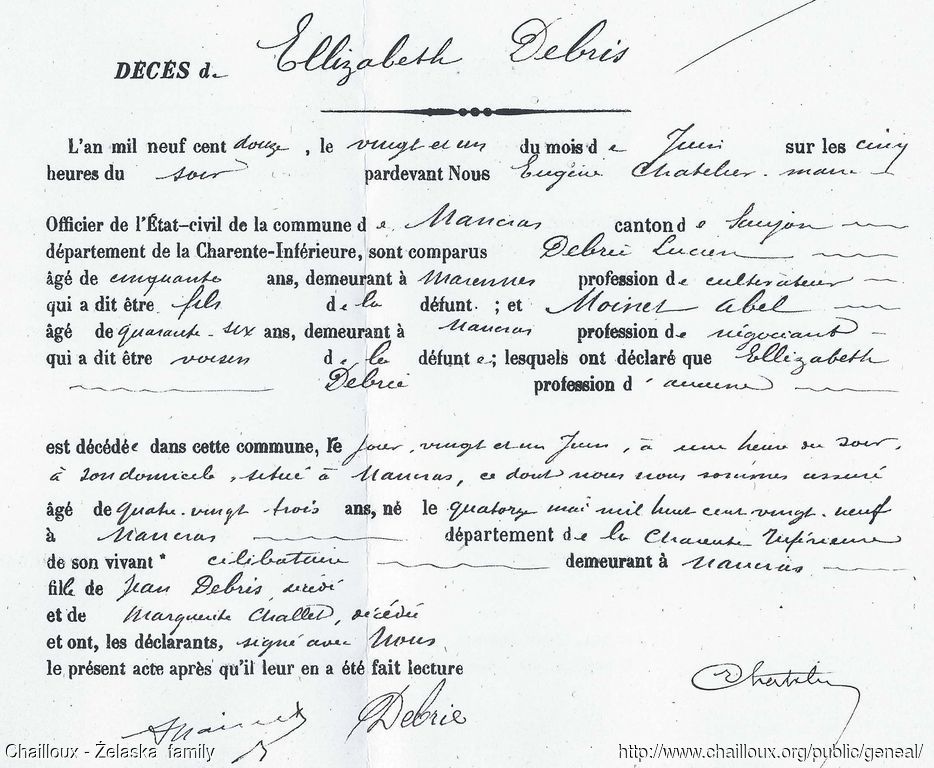 DÉCÈS de Ellizabeth Debris
L'an mil neuf cent douze, le vingt et un du mois de Juin sur les cinq
heures du soir pardevant Nous Eugène Chatelier maire
Officier de l'État-civil de la commune de Nancras canton de Saujon
département de la Charente-Inférieure, sont comparus Debrie Lucien
âgé de cinquante ans, demeurant à Marennes profession de cultivateur
qui a dit être fils de la défunt. ; et Moinet abel
âgé de quarante-six ans, demeurant à Nancras profession de négociant
qui a dit être voisin de la défunte; lesquels ont déclaré que Ellizabeth
Debrie profession d'aucune
est décédée dans cette commune, le jour, vingt et un Juin, à une heure du soir,
à son domicile, situé à Nancras, ce dont nous nous sommes assuré
âgé de quatre-vingt trois ans, né le quatorze mai mil huit cent vingt-neuf
à Nancras département de la Charente Inférieure
de son vivant * célibataire demeurant à Nancras
fille de Jean Debris, décédé
et de Marguerite Challet, décédée
et ont, les déclarants, signé avec Nous
le présent acte après qu'il leur en a été fait lecture
Chatelier
Moinet Debrie
Chailloux - Želaska family http://www.chailloux.org/public/geneal/